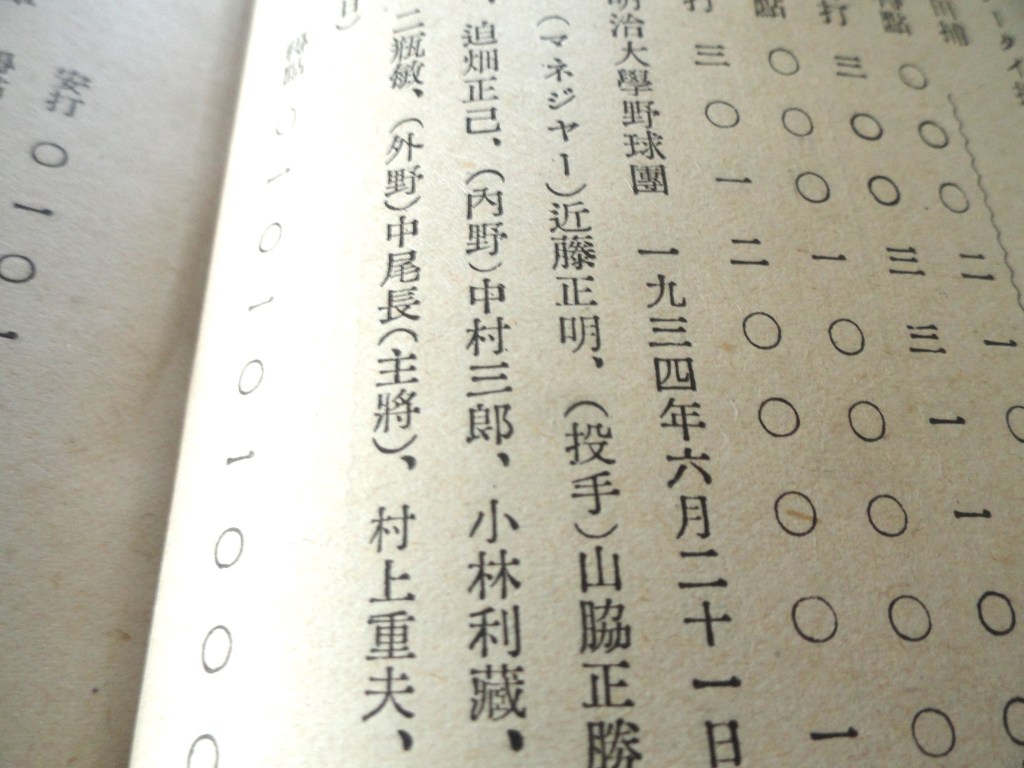 田捕
得點 〇 〇 〇 二 一 〇
打 三 〇 〇 三 三 一 一 〇 〇
點 〇 〇 〇 一 〇 〇 〇 〇 〇
打 三 〇 一 二 〇 〇 〇 〇 一
明治大學野球團 一九三四年六月二十一日
(マネジヤー)近藤正明、(投手)山脇正勝
、迫畑正己、(內野)中村三郎、小林利藏、
二瓶敏、(外野)中尾長(主將)、村上重夫、
日)
得點 〇 一 〇 一 〇 一 〇 〇 〇
安打 〇 一 〇 一